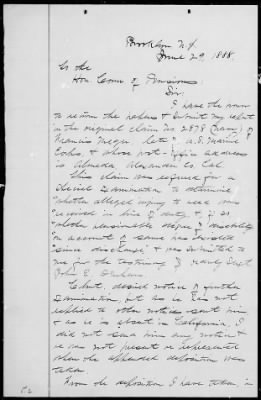 Brooklyn N.Y.
June 29, 1888.
To the
Hon. Comr of Pensions
Sir:
I have the honor
to return the papers & submit my report
in the original claim No 2878 (Navy) of
Francis late U.S. Marine
Corps & whose post-office address
is Alameda Alameda Co. Cal.
This claim was referred for a
Special Examination to determine
"whether alleged injury to was
"received in line of duty & if so
"whether pensionable degree of disability
"on account of same has existed
"since discharge" & was submitted to
me for the testimony of
John E.
Clmt. desired notice of further
Examination, but as he has not
replied to other notices sent him
& as he is absent in California, I
did not send him any notice &
he was not present or represented
when the appended deposition was
taken.
From the deposition I have taken in